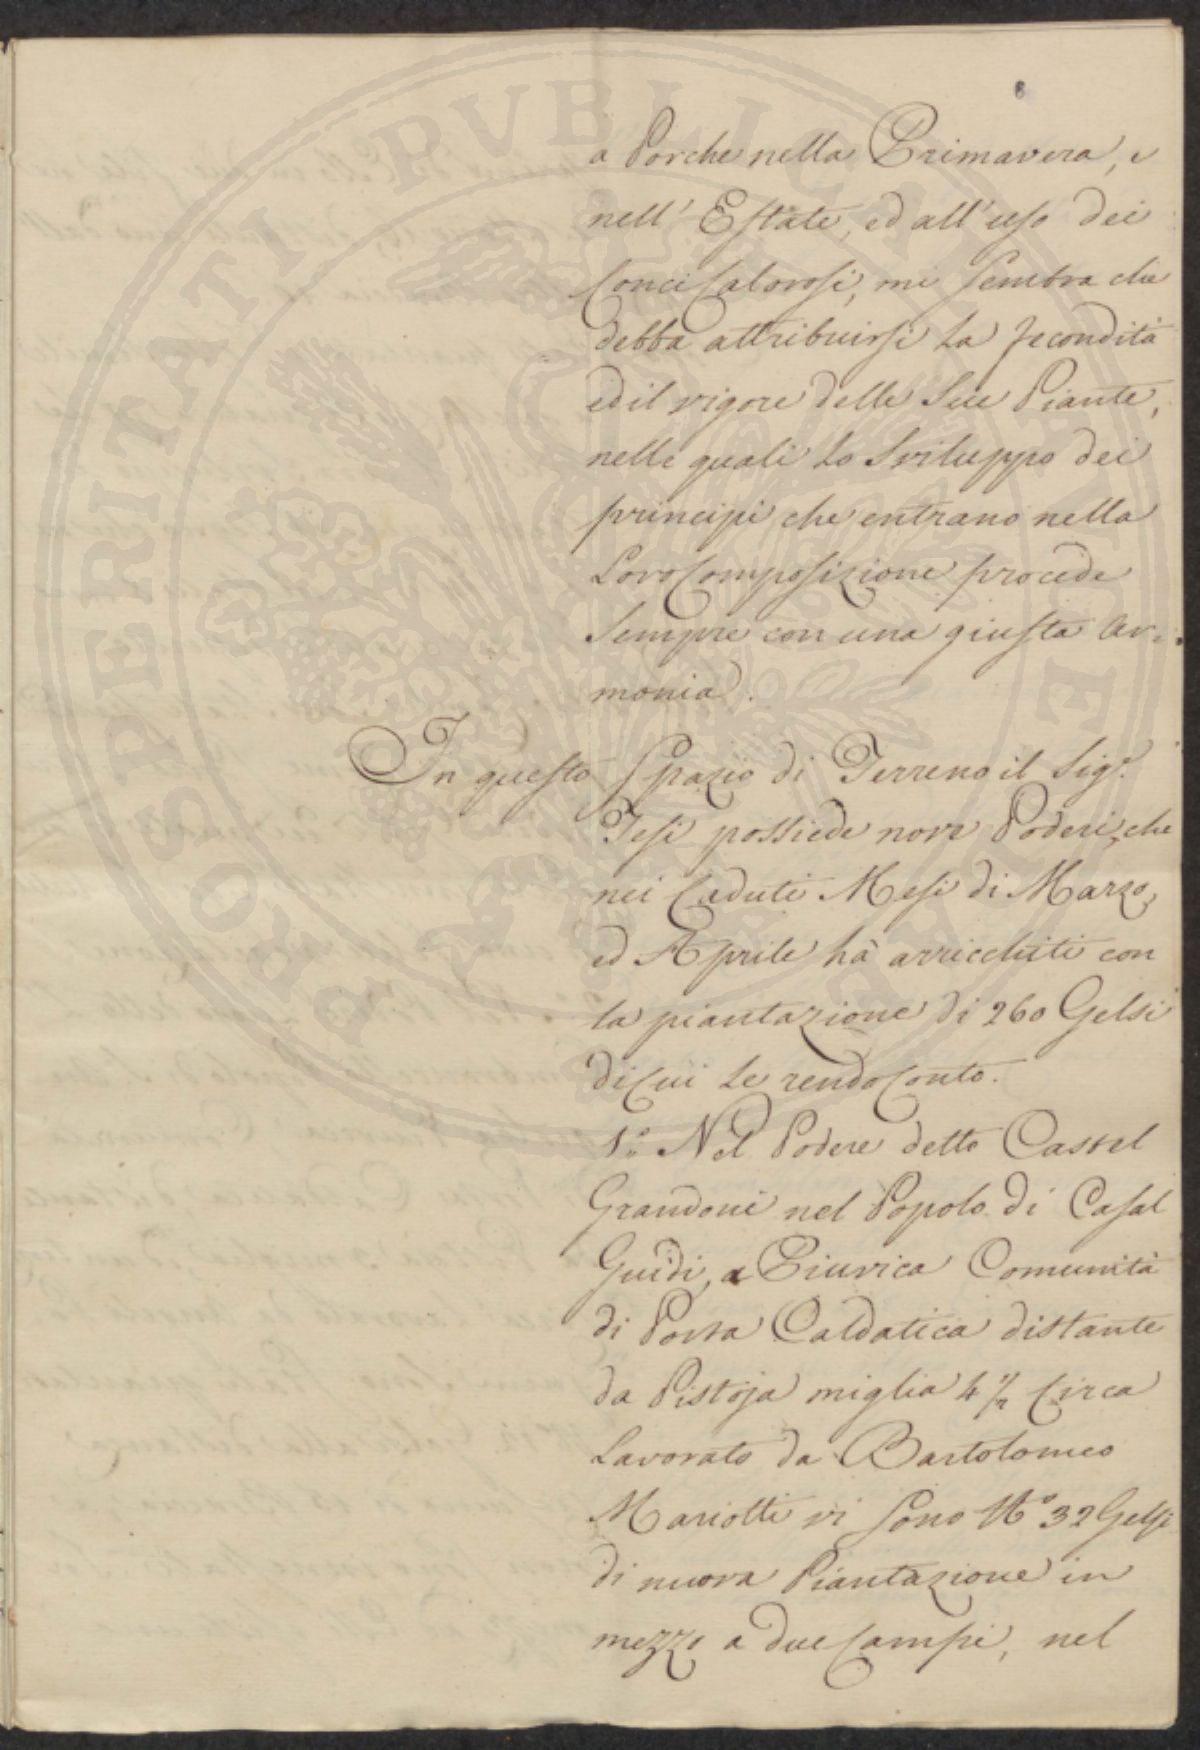 PROSPERITATI PUBLICAE AUGENDAE
a Porche nella Primavera, e
nell' Estate, ed all'uso dei
Conci Calorosi, mi sembra che
debba attribuirsi la fecondità
ed il vigore delle Sue Piante,
nelle quali lo Sviluppo dei
principi che entrano nella
Loro Composizione procede
Sempre con una giusta Ar=
monia.
In questo Spazio di Terreno il Sigr.
Tesi possiede nove Poderi, che
nei Caduti Mesi di Marzo,
ed Aprile hà arricchiti con
la piantazione di 260 Gelsi
di Cui Le rendo Conto.
1.° Nel Podere detto Castel
Grandoni nel Popolo di Casal
Guidi, a Piuvica Comunità
di Porta Caldatica distante
da Pistoja miglia 4 1/2 Circa
Lavorato da Bartolomeo
Mariotti vi sono N.° 32 Gelsi
di nuova Piantazione in
mezzo a due Campi, nel